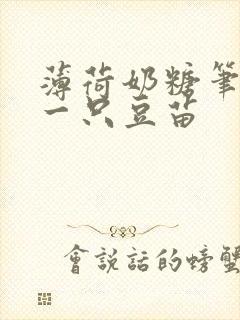 薄荷奶糖筆
一只豆苗
會說話的螃蟹